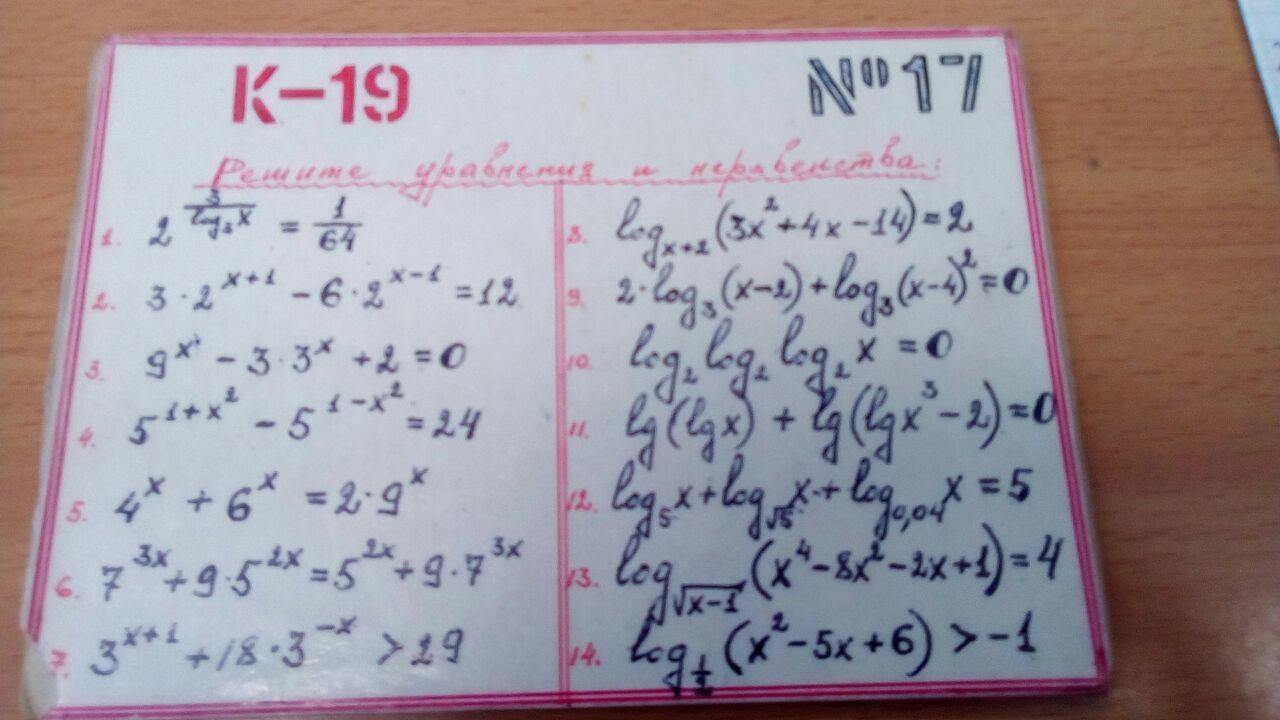 К-19 №17
Решите уравнения и неравенства:
1. 2^(3/log₂x) = 1/64
2. 3·2^(x+1) - 6·2^(x-1) = 12
3. 9^x - 3·3^x + 2 = 0
4. 5^(1+x²) - 5^(1-x²) = 24
5. 4^x + 6^x = 2·9^x
6. 7^(3x) + 9·5^(2x) = 5^(2x) + 9·7^(3x)
7. 3^(x+1) + 18·3^(-x) > 29
8. log_(x+2)(3x²+4x-14) = 2
9. 2·log₃(x-2) + log₃(x-4)² = 0
10. log₂ log₂ log₂ x = 0
11. lg(lgx) + lg(lgx³-2) = 0
12. log₅x + log_√5 x + log_0,04 x = 5
13. log_√(x-1) (x⁴-8x²-2x+1) = 4
14. log_(1/2)(x²-5x+6) > -1